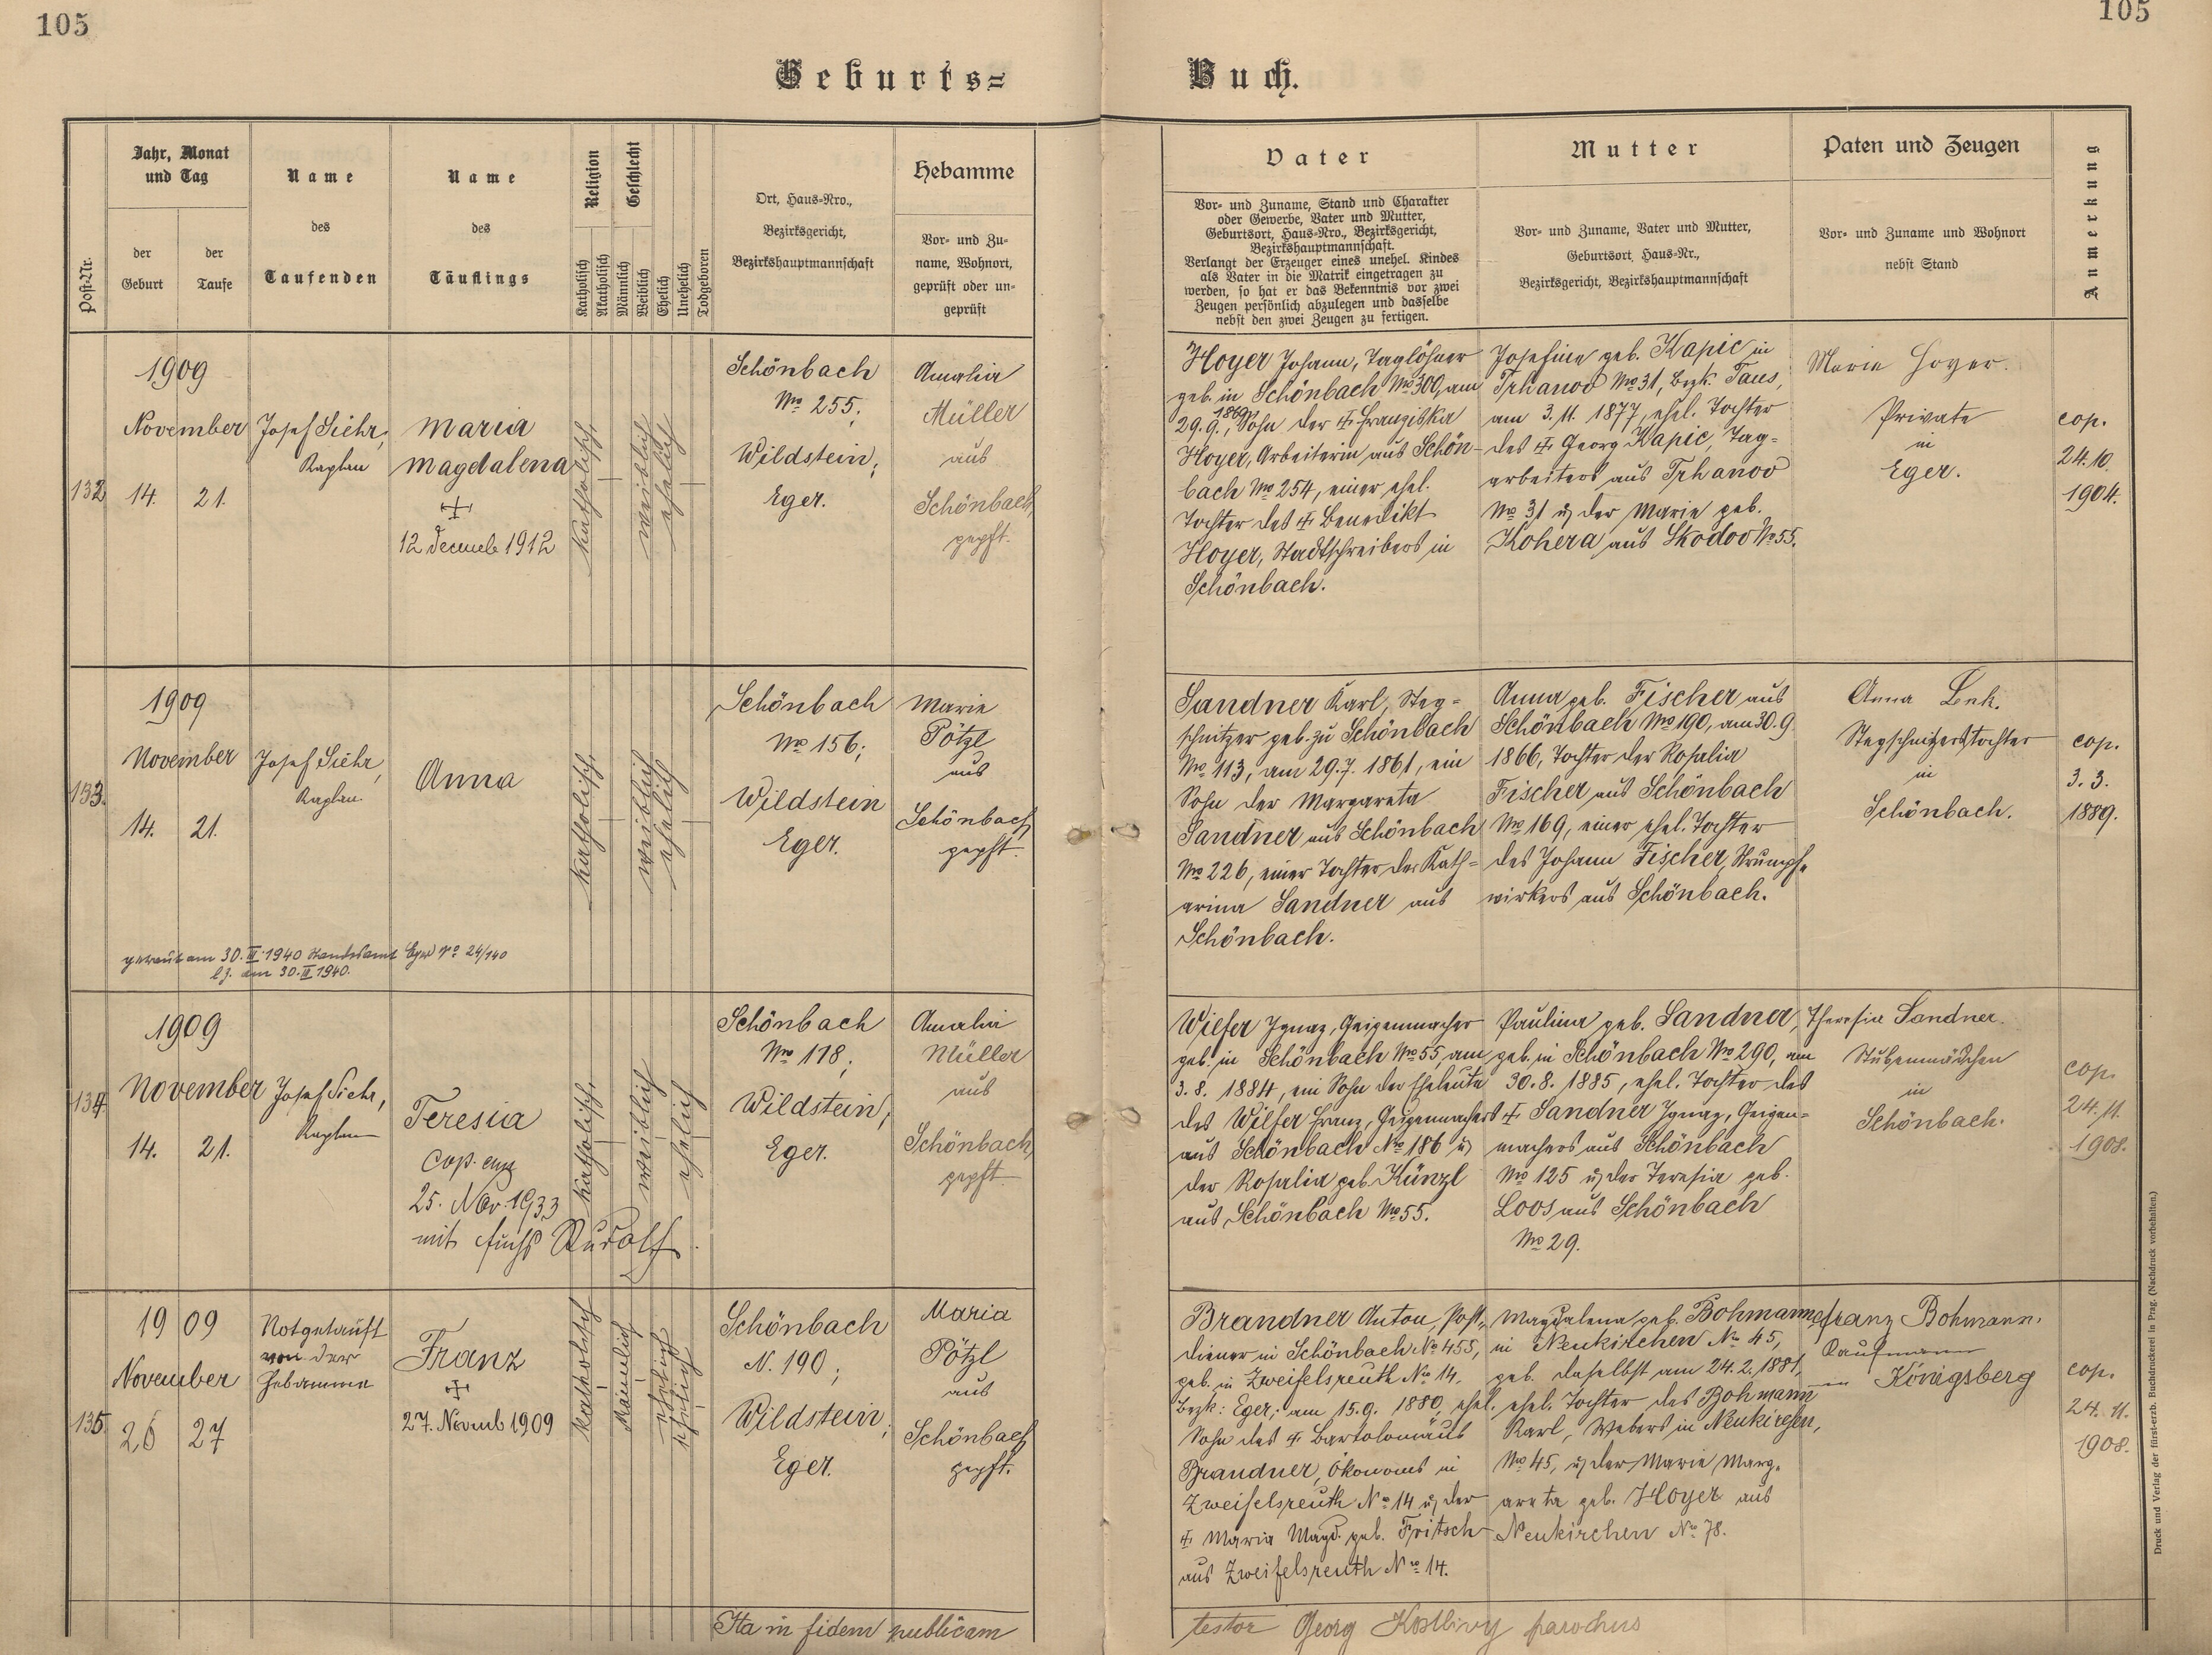 105
105
Geburts=
Buch.
Post-Nr.
Jahr, Monat
und Tag
der
Geburt
der
Taufe
Name
des
Taufenden
Name
des
Täuflings
Religion
Katholisch
Akatholisch
Geschlecht
Männlich
Weiblich
Ehelich
Unehelich
Todgeboren
Ort, Haus-Nro.,
Bezirksgericht,
Bezirkshauptmannschaft
Hebamme
Vor- und Zu-
name, Wohnort,
geprüft oder un-
geprüft
Vater
Vor- und Zuname, Stand und Charakter
oder Gewerbe, Vater und Mutter,
Geburtsort, Haus-Nro., Bezirksgericht,
Bezirkshauptmannschaft.
Verlangt der Erzeuger eines unehel. Kindes
als Vater in die Matrik eingetragen zu
werden, so hat er das Bekenntnis vor zwei
Zeugen persönlich abzulegen und dasselbe
nebst den zwei Zeugen zu fertigen.
Mutter
Vor- und Zuname, Vater und Mutter,
Geburtsort, Haus-Nr.,
Bezirksgericht, Bezirkshauptmannschaft
Paten und Zeugen
Vor- und Zuname und Wohnort
nebst Stand
Anmerkung
132
1909
November
14. 21.
Josef Siehr,
Kaplan
Maria
Magdalena
☩
12 Decemb 1912
katholisch
weiblich
ehelich
Schönbach
No 255;
Wildstein;
Eger.
Amalia
Müller
aus
Schönbach,
gepft.
Hoyer Johann, Taglöhner
geb. in Schönbach No 300, am
29.9. 1869, Sohn der ☩ Franziska
Hoyer, Arbeiterin aus Schön-
bach No 254, einer ehel.
Tochter des ☩ Benedikt
Hoyer, Stadtschreibers in
Schönbach.
Josefine geb. Kapic in
Trhanov No 31, Bezk. Taus,
am 3.11. 1877, ehel. Tochter
des ☩ Georg Kapic, Tag=
arbeiters aus Trhanov
No 31 u der Marie geb.
Kohera aus Skodov No 55.
Marie Hoyer.
Private
in
Eger.
cop.
24.10.
1904.
133.
1909
November
14. 21.
Josef Siehr,
Kaplan.
Anna
getraut am 30.III.1940 Standesamt Eger No 24/140
katholisch
weiblich
ehelich
Schönbach
No 156;
Wildstein
Eger.
Marie
Pötzl
aus
Schönbach
gepft.
Sandner Karl, Steg=
schnitzer geb. zu Schönbach
No 113, am 29.7. 1861, ein
Sohn der Margareta
Sandner aus Schönbach
No 226, einer Tochter der Kath=
arina Sandner aus
Schönbach.
Anna geb. Fischer aus
Schönbach No 190, am 30.9.
1866, Tochter der Rosalia
Fischer aus Schönbach
No 169, einer ehel. Tochter
des Johann Fischer, Strumpf=
wirkers aus Schönbach.
Anna Lenk.
Stegschnitzerstochter
in
Schönbach.
cop.
3. 3.
1889.
134.
1909
November
14. 21.
Josef Siehr,
Kaplan
Teresia
Cop.
25. Nov. 1933
mit Fuchs Rudolf
katholisch
weiblich
ehelich
Schönbach
No 118;
Wildstein;
Eger.
Amalia
Müller
aus
Schönbach,
gepft.
Wilfer Ignaz, Geigenmacher
geb. in Schönbach No 55, am
3.8. 1884, ein Sohn der Eheleute
des Wilfer Franz, Geigenmachers
aus Schönbach No 186 u
der Rosalia geb. Künzl
aus Schönbach No 55.
Paulina geb. Sandner,
geb. in Schönbach No 290, am
30.8. 1885, ehel. Tochter des
☩ Sandner Ignaz, Geigen=
machers aus Schönbach
No 125 u der Teresia geb.
Loos aus Schönbach
No 29.
Theresia Sandner.
Stubenmädchen
in
Schönbach.
cop.
24.11.
1908.
135
1909
November
26 27
Notgetauft
von der
Hebamme
Franz
☩
27. Novemb 1909
katholisch
männlich
ehelich
Schönbach
N. 190;
Wildstein;
Eger.
Maria
Pötzl
aus
Schönbach
gepft.
Brandner Anton, Post=
diener in Schönbach No 455,
geb. in Zweifelsreuth No 14.
Bezk: Eger; am 15.9. 1880, ehel.
Sohn des ☩ Bartolomäus
Brandner, Ökonoms in
Zweifelsreuth No 14 u der
☩ Maria Magd. geb. Fritsch
aus Zweifelsreuth No 14.
Magdalena geb. Bohmann
in Neukirchen No 45,
geb. daselbst am 24.2.1881,
ehel. Tochter des Bohmann
Karl, Webers in Neukirchen,
No 45, u der Marie Marg=
areta geb. Hoyer aus
Neukirchen No 78.
Franz Bohmann.
Kaufmann
in Königsberg
cop.
24.11.
1908.
Ita in fidem publicam
testor Georg Kostlivy parochus
Druck und Verlag der fürst-erzb. Buchdruckerei in Prag. (Nachdruck vorbehalten.)